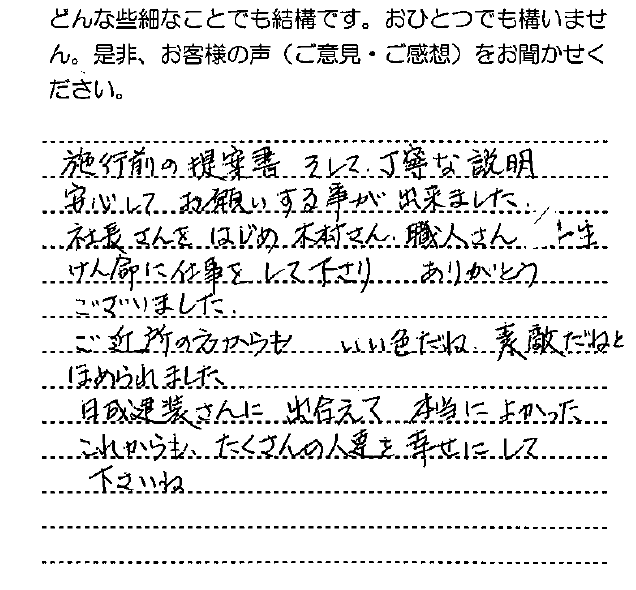 どんな些細なことでも結構です。おひとつでも構いませ
ん。是非、お客様の声（ご意見・ご感想）をお聞かせく
ださい。
施行前の提案書 そして、丁寧な説明
安心して お願いする事が 出来ました。
社長さんを はじめ 木村さん、職人さん 一生
けん命に仕事を して下さり ありがとう
ございました。
ご近所の方からも いい色だね、素敵だねと
ほめられました。
日成建装さんに 出合えて 本当に よかった。
これからも、たくさんの人達を 幸せに して
下さいね